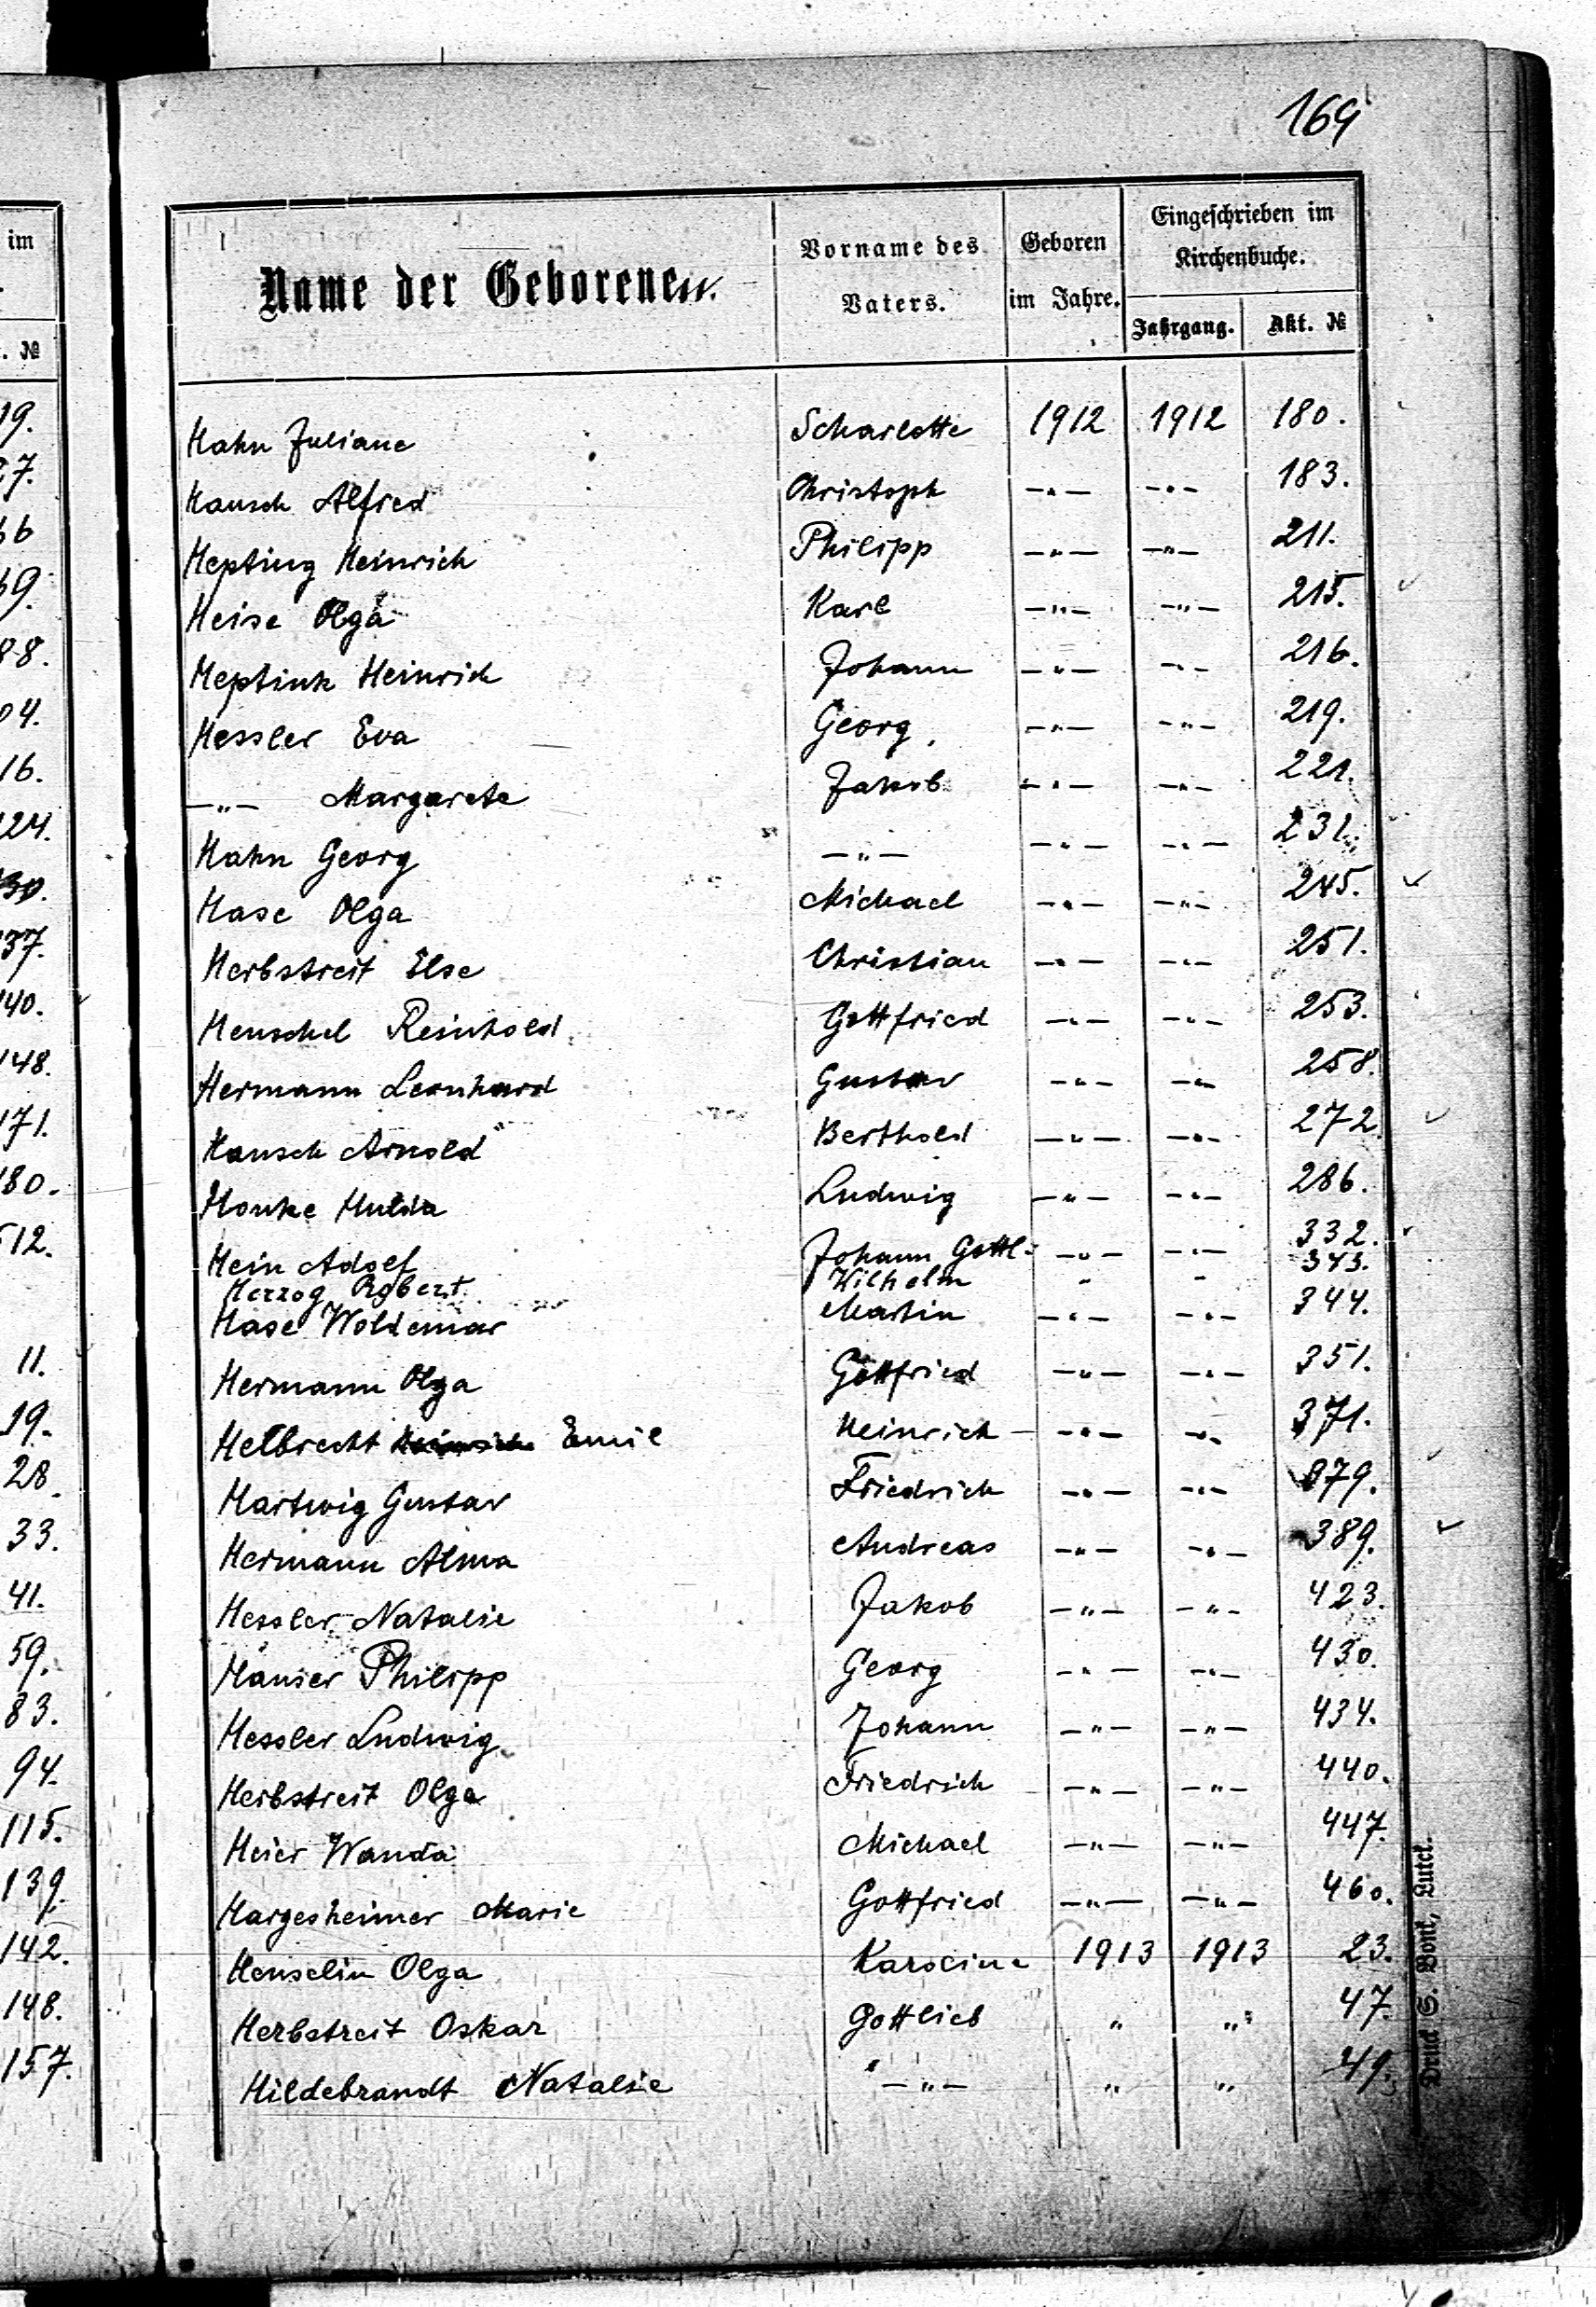 169
im
Name der Geborenen.
Vorname des Vaters.
Geboren im Jahre.
Eingeschrieben im Kirchenbuche.
Jahrgang.
Akt. №
. №
19.
Hahn Juliane Scharlotte 1912 1912 180.
27.
Hausch Alfred Christoph —„— —„— 183.
66
Hepting Heinrich Philipp —„— —„— 211.
69.
Heise Olga Karl —„— —„— 215.
88.
Heptink Heinrich Johann —„— —„— 216.
04.
Hessler Eva Georg —„— —„— 219.
16.
—„— Margarete Jakob —„— —„— 221.
24.
Hahn Georg —„— —„— —„— 231.
30.
Hase Olga Michael —„— —„— 245.
37.
Herbstreit Else Christian —„— —„— 251.
140.
Henschel Reinhold Gottfried —„— —„— 253.
148.
Hermann Leonhard Gustav —„— —„— 258.
171.
Hausch Arnold Berthold —„— —„— 272
180.
Honke Hulda Ludwig —„— —„— 286.
512.
Hein Adolf Johann Gottl: —„— —„— 332.
Herzog Robert Wilhelm „ „ 343.
Hase Woldemar Martin —„— —„— 344.
11.
Hermann Olga Gottfried —„— —„— 351.
19.
Helbrecht Emil Heinrich —„— —„— 371.
28.
Hartwig Gustav Friedrich —„— —„— 379.
33.
Hermann Alma Andreas —„— —„— 389.
41.
Hessler Natalie Jakob —„— —„— 423.
59.
Hauser Philipp Georg —„— —„— 430.
83.
Hessler Ludwig Johann —„— —„— 434.
94.
Herbstreit Olga Friedrich —„— —„— 440.
115.
Heier Wanda Michael —„— —„— 447.
139.
Hargesheimer Marie Gottfried —„— —„— 460.
142.
Henselin Olga Karoline 1913 1913 23.
148.
Herbstreit Oskar Gottlieb „ „ 47.
157.
Hildebrandt Natalie —„— „ „ 49.
Druck S. Bonk, Lutck.